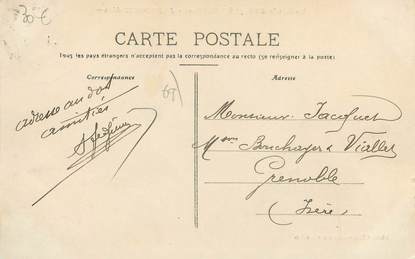 30€
CARTE POSTALE
Tous les pays étrangers n'acceptent pas la correspondance au recto (se renseigner à la poste)
Correspondance
Adresse
adresse au dos
amitiés
Monsieur Jacquet
Mson Bouchayer & Viallet
Grenoble
Isère